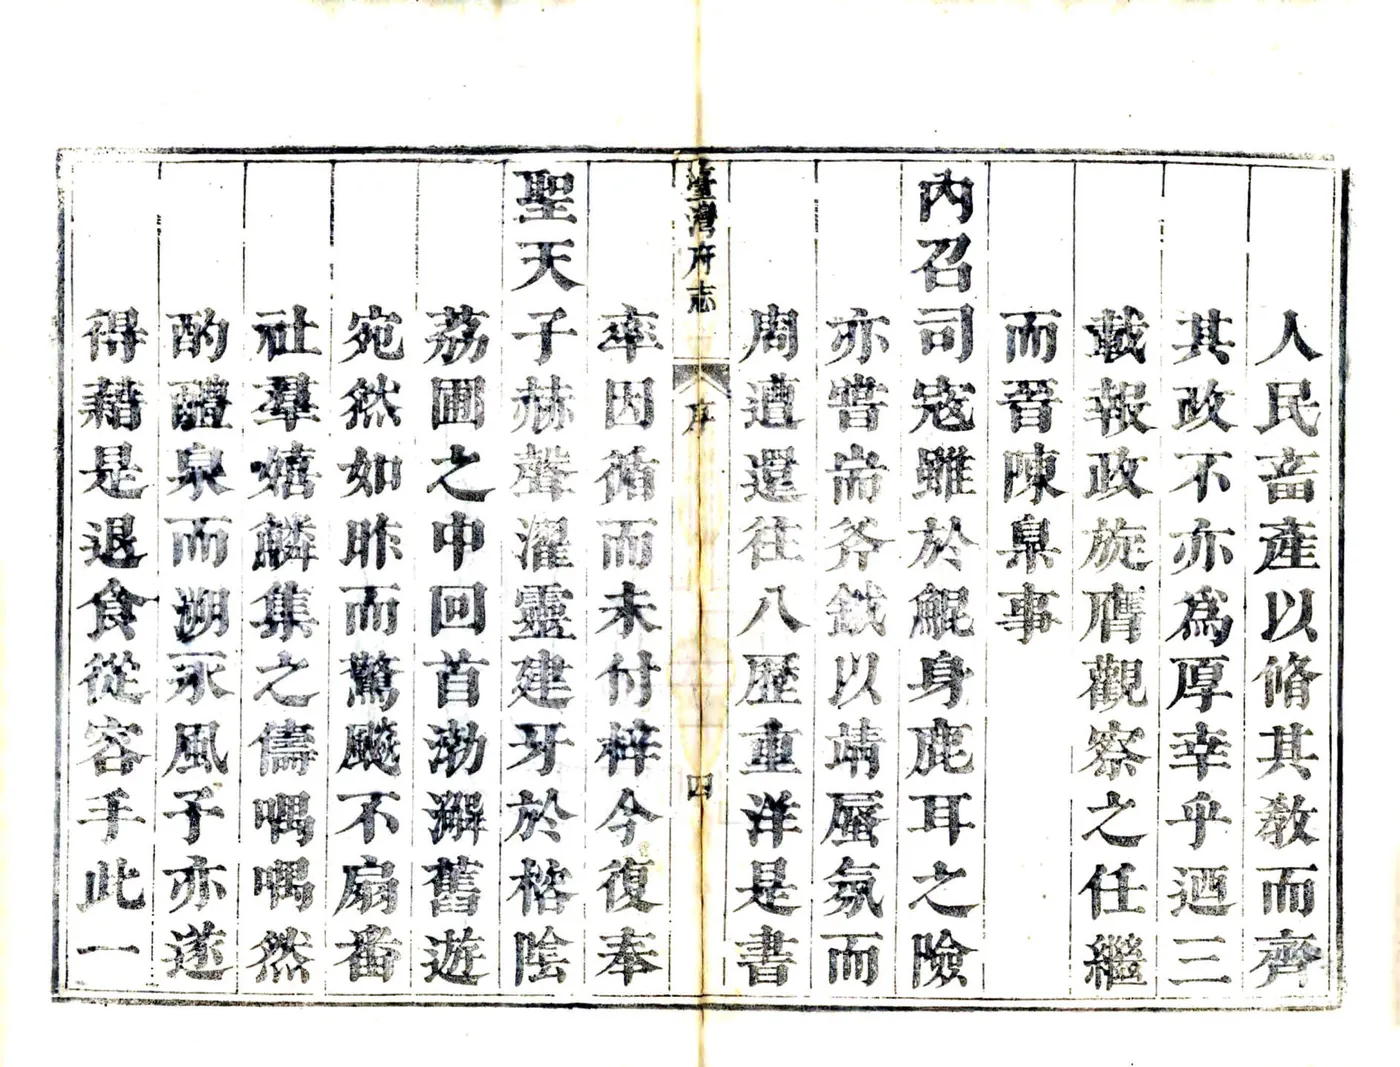 人民畜產以脩其敎而齊
其政不亦爲厚幸乎迺三
載報政旋膺觀察之任繼
而晉陳臬事
內召司寇雖於鯤身鹿耳之險
亦嘗耑斧鉞以靖蜃氛而
周遭還往八歴重洋是書
臺灣府志 序 四
率因循而未付梓今復奉
聖天子赫聲濯靈建牙於榕陰
荔圃之中回首渤澥舊遊
宛然如昨而驚颷不扇番
社羣嬉麟集之儔喁喁然
酌醴泉而溯承風子亦遂
得藉是退食從容手此一